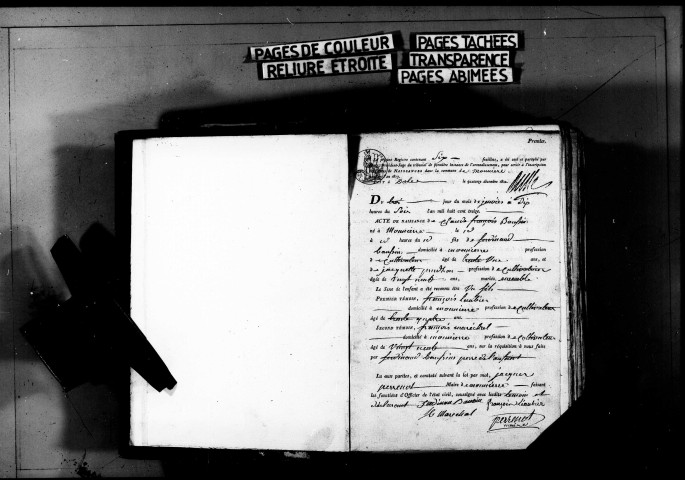 PAGES DE COULEUR
RELIURE ETROITE
PAGES TACHÉES
TRANSPARENCE
PAGES ABIMÉES
Premier.
Le présent Registre contenant Six feuillets, a été coté et paraphé par
Juge du tribunal de première instance de l'arrondissement, pour servir à l'inscription
NAISSANCES dans la commune de Monniere
à Dole le quatorze décembre 1812
Du trois jour du mois de janvier à Dix
heures du Soir l'an mil huit cent treize.
ACTE DE NAISSANCE de Claude françois
né à Monniere le id
à id heures du id fils de ferdinand
domicilié à monniere profession
de cultivateur âgé de trente une ans, et
de jacquette profession de cultivatrice
âgée de vingt neuf ans, mariés ensemble
Le Sexe de l'enfant a été reconnu être Un fils
PREMIER TÉMOIN, françois
domicilié à monniere profession de cultivateur
âgé de trente quatre ans
SECOND TÉMOIN, françois maréchal
domicilié à monniere profession de cultivateur
âgé de Vingt neuf ans, sur la réquisition à nous faite
par ferdinand pere de l'enfant
Lu aux parties, et constaté suivant la loi par moi, jacques
perrenot Maire de monniere faisant
les fonctions d'Officier de l'état civil, soussigné avec lesdits temoin et
declarant ferdinand françois
Maréchal
perrenot
maire